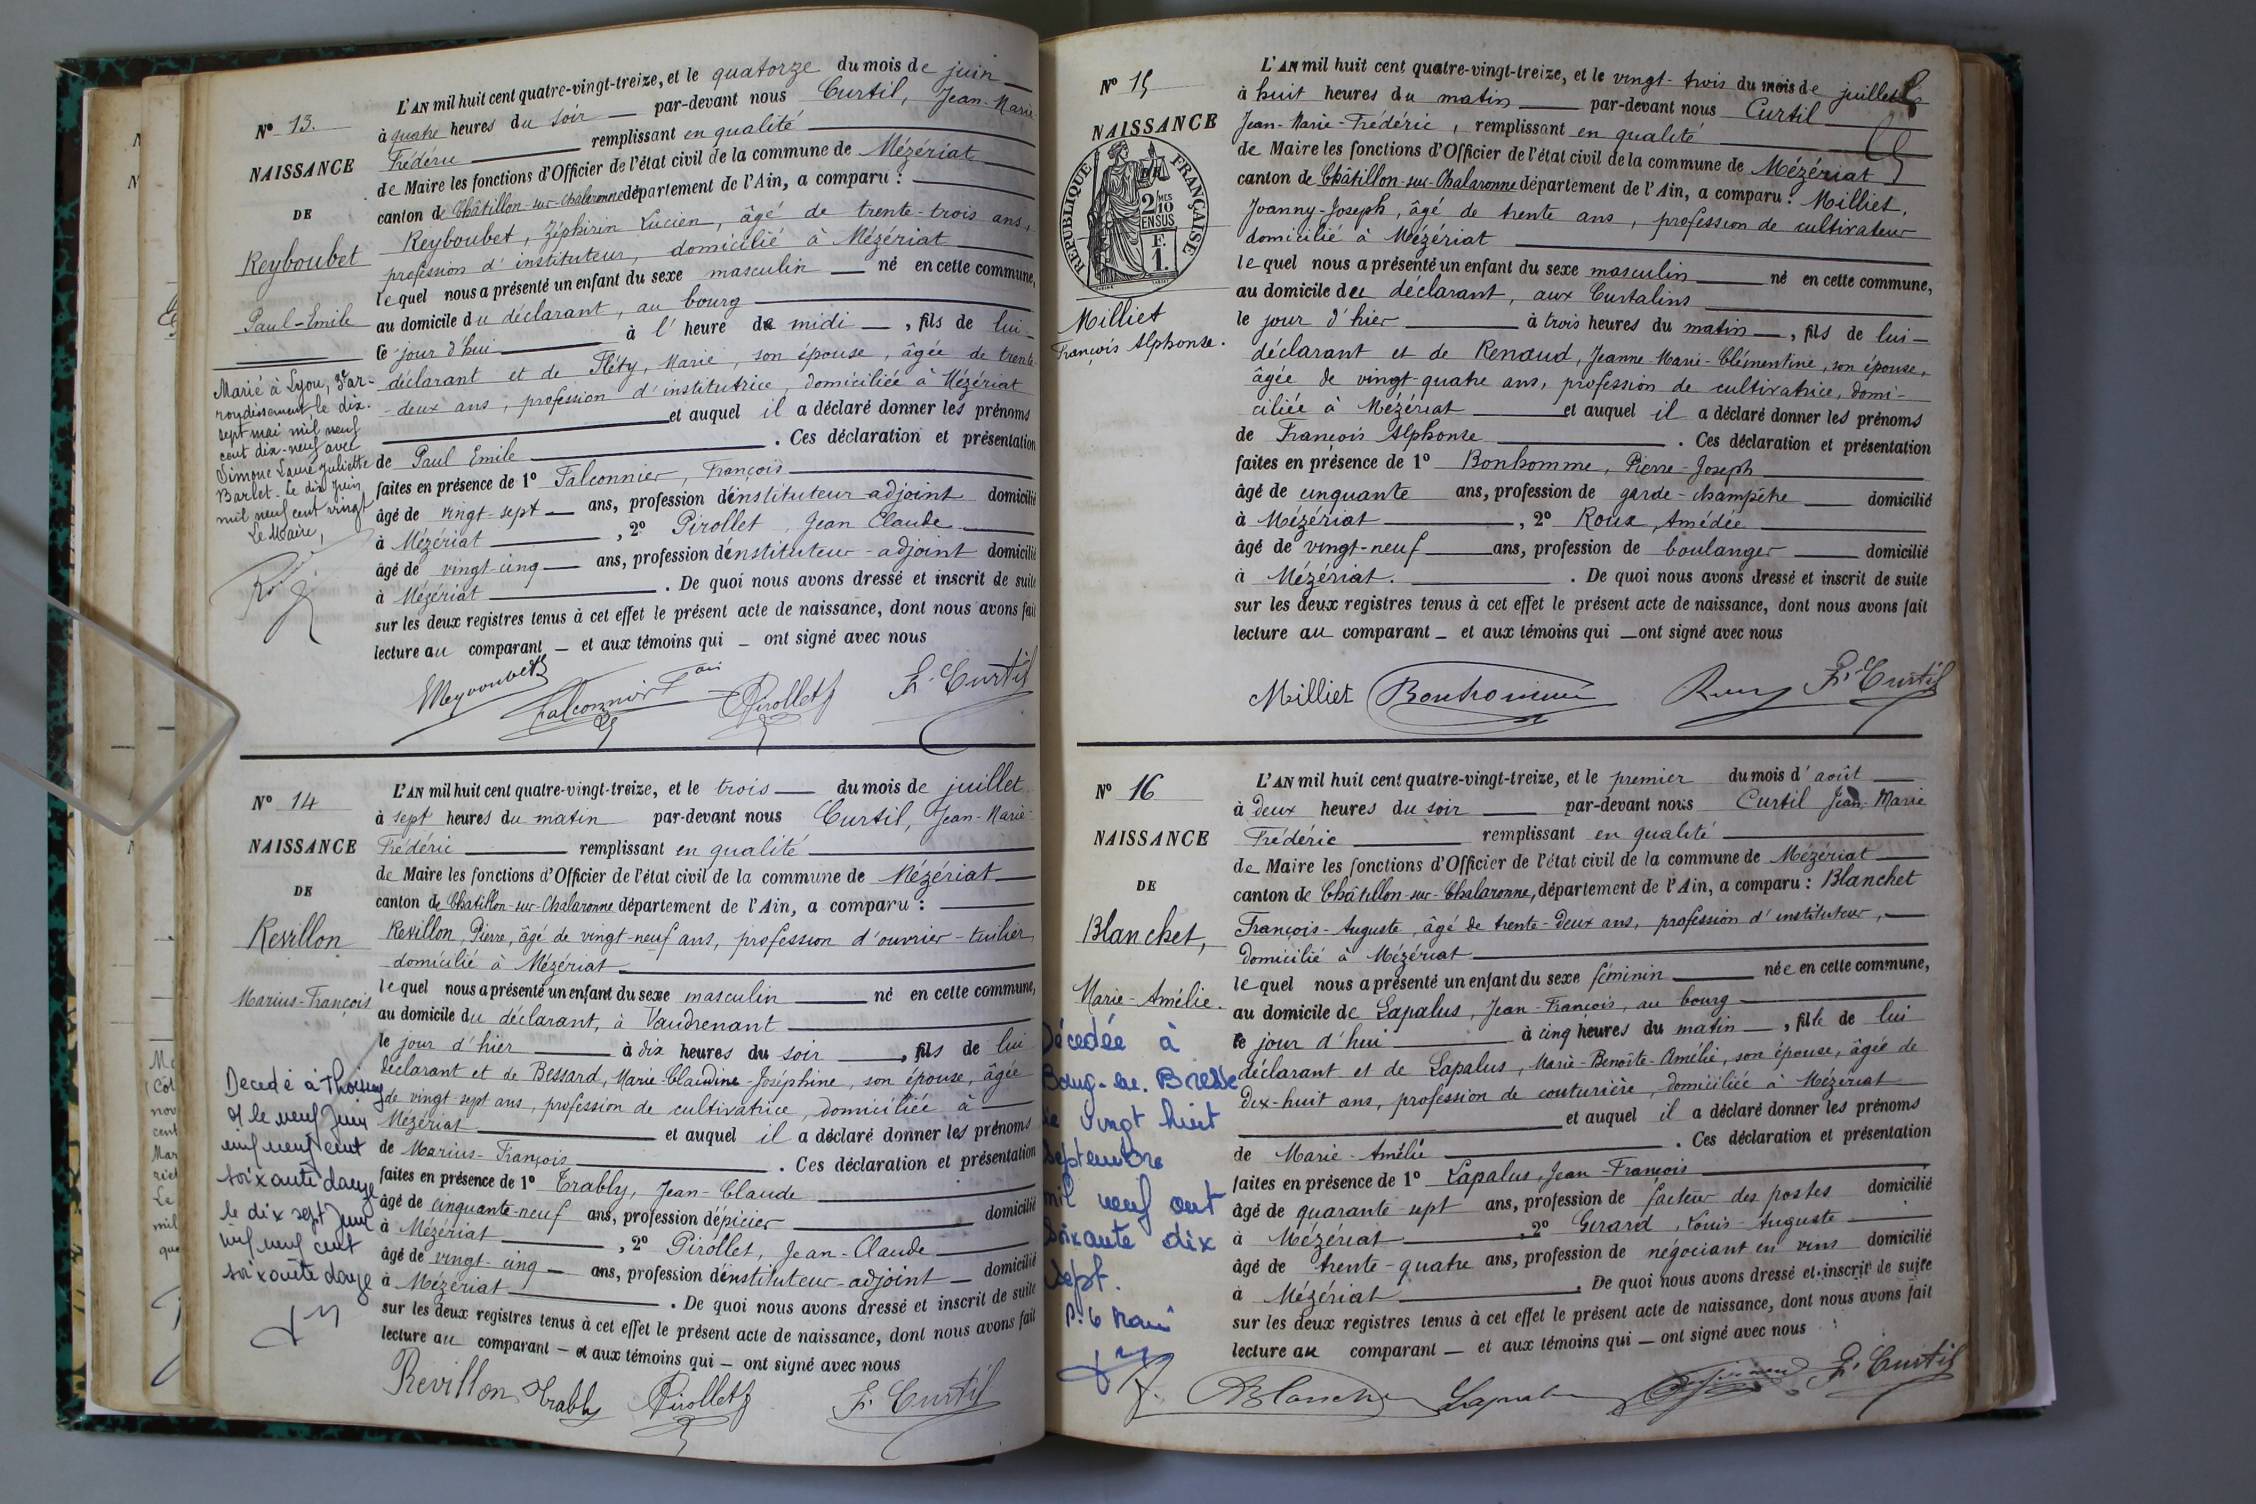 N° 13.
NAISSANCE
DE
Reyboubet
Paul-Emile
Marié à Lyon, 3e ar-
rondissement, le dix-
sept mai mil neuf
cent dix-neuf avec
Simone Laure Juliette
Barlet. Le dix Juin
mil neuf cent vingt
Le Maire,
L'AN mil huit cent quatre-vingt-treize, et le quatorze du mois de juin
à quatre heures du soir par-devant nous Curtil, Jean-Marie
Frédéric remplissant en qualité
de Maire les fonctions d'Officier de l'état civil de la commune de Mézériat
canton de Châtillon-sur-Chalaronne département de l'Ain, a comparu :
Reyboubet, Zéphirin Lucien, âgé de trente-trois ans,
profession d'instituteur, domicilié à Mézériat
lequel nous a présenté un enfant du sexe masculin né en cette commune,
au domicile du déclarant, au bourg
le jour d'hui à l'heure de midi, fils de lui-
déclarant et de Fléty, Marie, son épouse, âgée de trente-
-deux ans, profession d'institutrice, domiciliée à Mézériat
et auquel il a déclaré donner les prénoms
de Paul Emile. Ces déclaration et présentation
faites en présence de 1° Falconnier, François
âgé de vingt-sept ans, profession d'instituteur-adjoint domicilié
à Mézériat, 2° Pirollet, Jean Claude
âgé de vingt-cinq ans, profession d'instituteur-adjoint domicilié
à Mézériat. De quoi nous avons dressé et inscrit de suite
sur les deux registres tenus à cet effet le présent acte de naissance, dont nous avons fait
lecture au comparant et aux témoins qui ont signé avec nous
Falconnier Pirollet F. Curtil
N° 14
NAISSANCE
DE
Revillon
Marius-François
Decedé à Thoissey
le neuf Juin
mil neuf cent
soixante douze
le dix sept Juin
mil neuf cent
soixante douze
L'AN mil huit cent quatre-vingt-treize, et le trois du mois de juillet
à sept heures du matin par-devant nous Curtil, Jean-Marie-
Frédéric remplissant en qualité
de Maire les fonctions d'Officier de l'état civil de la commune de Mézériat
canton de Chatillon-sur-Chalaronne département de l'Ain, a comparu :
Revillon, Pierre, âgé de vingt-neuf ans, profession d'ouvrier-tuilier,
domicilié à Mézériat
lequel nous a présenté un enfant du sexe masculin né en cette commune,
au domicile du déclarant, à Vaudrenant
le jour d'hier à dix heures du soir, fils de lui
déclarant et de Bessard, Marie Claudine-Joséphine, son épouse, âgée
de vingt-sept ans, profession de cultivatrice, domiciliée à
Mézériat et auquel il a déclaré donner les prénoms
de Marius-François. Ces déclaration et présentation
faites en présence de 1° Trably, Jean-Claude
âgé de cinquante-neuf ans, profession d'épicier domicilié
à Mézériat, 2° Pirollet, Jean-Claude
âgé de vingt-cinq ans, profession d'instituteur-adjoint domicilié
à Mézériat. De quoi nous avons dressé et inscrit de suite
sur les deux registres tenus à cet effet le présent acte de naissance, dont nous avons fait
lecture au comparant et aux témoins qui ont signé avec nous
Revillon Trably Pirollet F. Curtil
N° 15
NAISSANCE
RÉPUBLIQUE FRANÇAISE
2/10 MES
EN SUS
F.
1.
Milliet
François Alphonse.
L'AN mil huit cent quatre-vingt-treize, et le vingt-trois du mois de juillet
à huit heures du matin par-devant nous Curtil
Jean-Marie-Frédéric, remplissant en qualité
de Maire les fonctions d'Officier de l'état civil de la commune de Mézériat
canton de Châtillon-sur-Chalaronne département de l'Ain, a comparu : Milliet,
Joanny-Joseph, âgé de trente ans, profession de cultivateur
domicilié à Mézériat
lequel nous a présenté un enfant du sexe masculin né en cette commune,
au domicile du déclarant, aux Curtalins
le jour d'hier à trois heures du matin, fils de lui-
déclarant et de Renaud, Jeanne-Marie-Clémentine, son épouse,
âgée de vingt-quatre ans, profession de cultivatrice, domi-
ciliée à Mézériat et auquel il a déclaré donner les prénoms
de François Alphonse. Ces déclaration et présentation
faites en présence de 1° Bonhomme, Pierre-Joseph
âgé de cinquante ans, profession de garde-champêtre domicilié
à Mézériat, 2° Roux, Amédée
âgé de vingt-neuf ans, profession de boulanger domicilié
à Mézériat. De quoi nous avons dressé et inscrit de suite
sur les deux registres tenus à cet effet le présent acte de naissance, dont nous avons fait
lecture au comparant et aux témoins qui ont signé avec nous
Milliet Bonhomme Roux F. Curtil
N° 16
NAISSANCE
DE
Blanchet,
Marie-Amélie.
Décedée à
Bourg-en-Bresse
le vingt huit
Septembre
mil neuf cent
soixante dix
sept.
L'AN mil huit cent quatre-vingt-treize, et le premier du mois d'août
à deux heures du soir par-devant nous Curtil Jean-Marie
Frédéric remplissant en qualité
de Maire les fonctions d'Officier de l'état civil de la commune de Mézériat
canton de Châtillon-sur-Chalaronne, département de l'Ain, a comparu : Blanchet
François-Auguste, âgé de trente-deux ans, profession d'instituteur,
domicilié à Mézériat
lequel nous a présenté un enfant du sexe féminin née en cette commune,
au domicile de Lapalus, Jean-François, au bourg
le jour d'hui à cinq heures du matin, fille de lui
déclarant et de Lapalus, Marie-Benoîte-Amélie, son épouse, âgée de
dix-huit ans, profession de couturière, domiciliée à Mézériat
et auquel il a déclaré donner les prénoms
de Marie-Amélie. Ces déclaration et présentation
faites en présence de 1° Lapalus, Jean-François
âgé de quarante-sept ans, profession de facteur des postes domicilié
à Mézériat, 2° Gérard, Louis-Auguste
âgé de trente-quatre ans, profession de négociant en vins domicilié
à Mézériat. De quoi nous avons dressé et inscrit de suite
sur les deux registres tenus à cet effet le présent acte de naissance, dont nous avons fait
lecture au comparant et aux témoins qui ont signé avec nous
Blanchet Lapalus F. Curtil